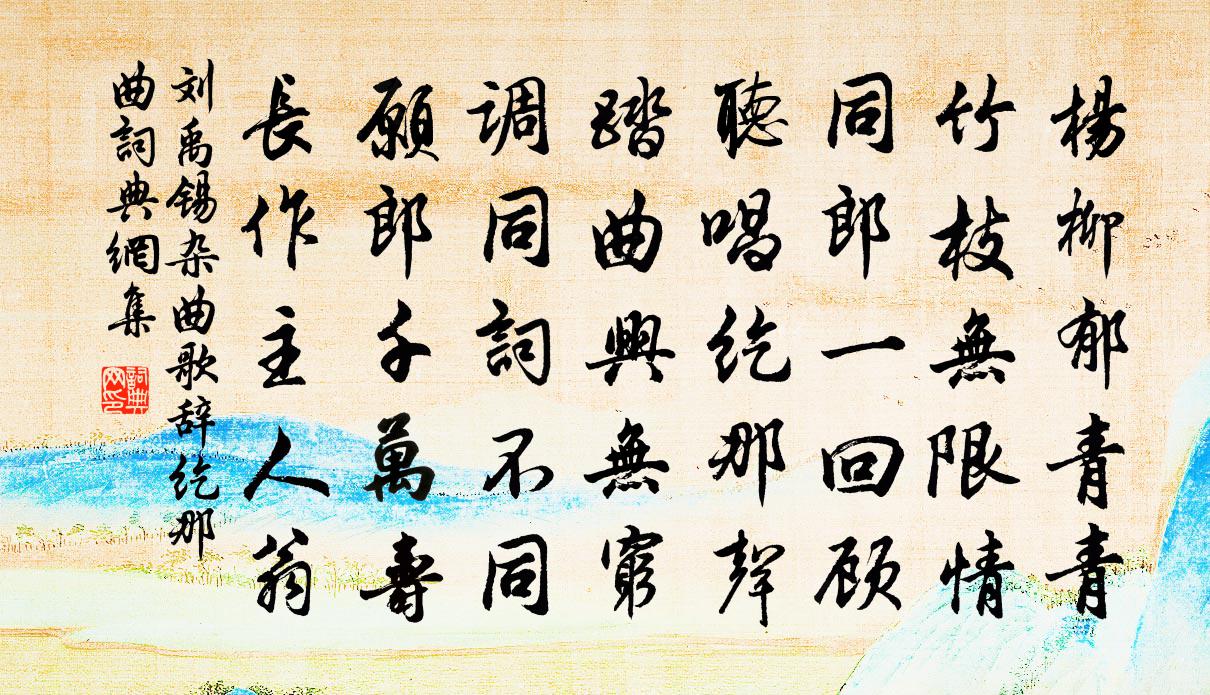 楊柳郁青青
竹枝無限情
同郎一回顾
聽唱紇那聲
踏曲興無窮
调同詞不同
願郎千萬壽
長作主人翁
刘禹锡杂曲歌辞紇那
曲詞典網集
詞典
网印